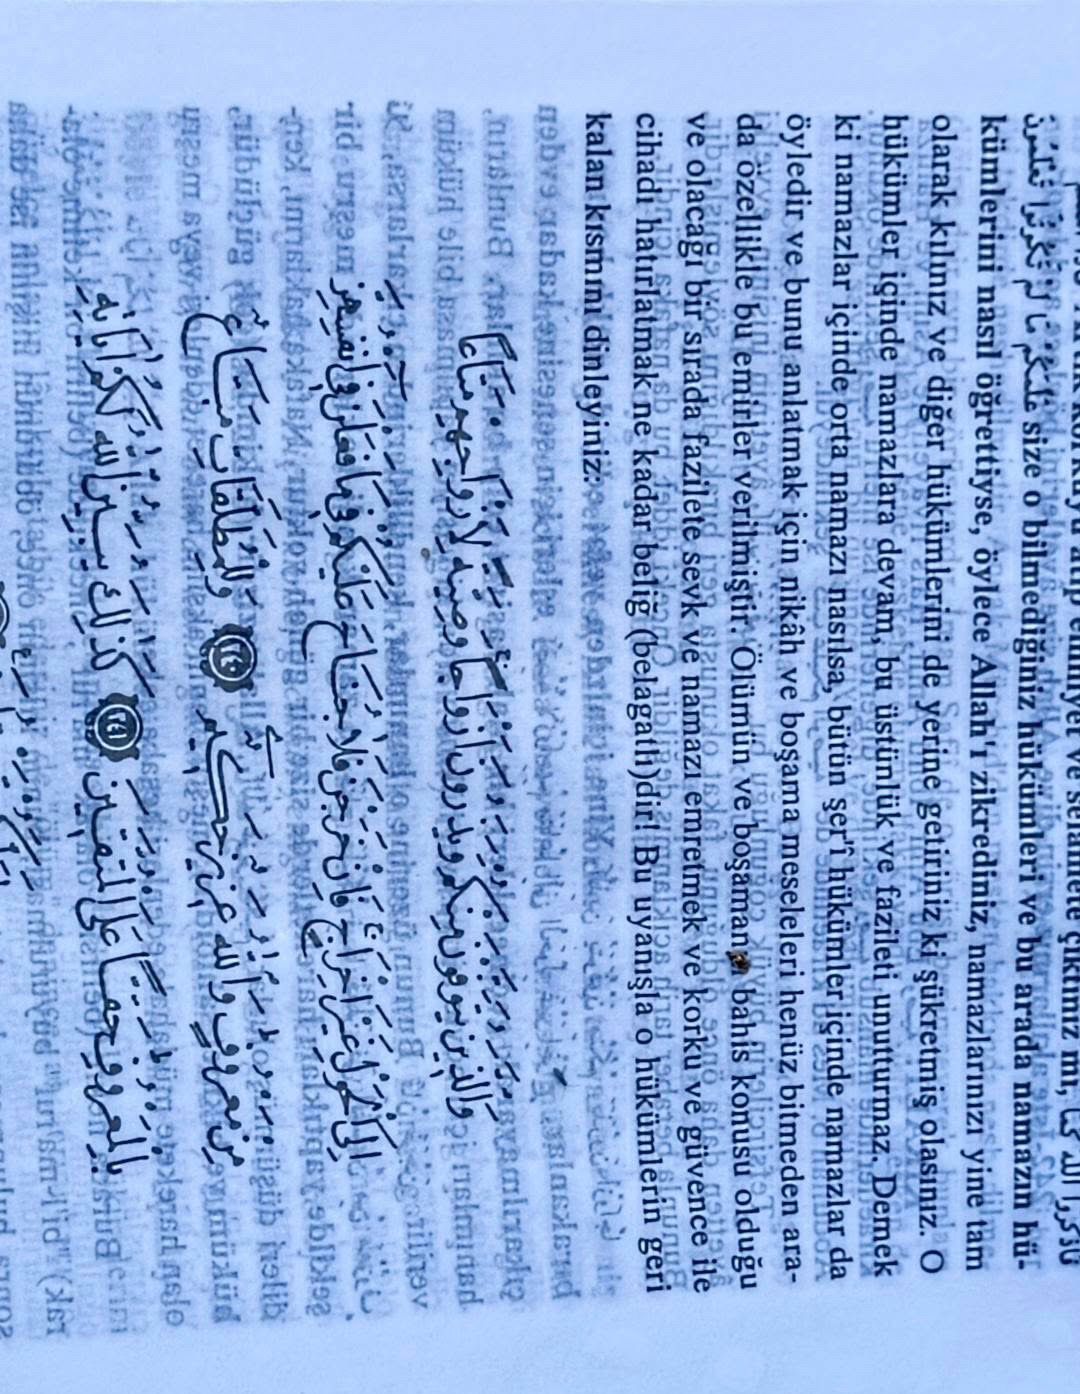 korkuyu atıp emniyet ve selamete çıktınız mı, فَاذْكُرُوا اللّٰهَ كَمَا
عَلَّمَكُمْ مَا لَمْ تَكُونُوا تَعْلَمُونَ size o bilmediğiniz hükümleri ve bu arada namazın hü-
kümlerini nasıl öğrettiyse, öylece Allah'ı zikrediniz, namazlarınızı yine tam
olarak kılınız ve diğer hükümlerini de yerine getiriniz ki şükretmiş olasınız. O
hükümler içinde namazlara devam, bu üstünlük ve fazileti unutturmaz. Demek
ki namazlar içinde orta namazı nasılsa, bütün şer'î hükümler içinde namazlar da
öyledir ve bunu anlatmak için nikâh ve boşama meseleleri henüz bitmeden ara-
da özellikle bu emirler verilmiştir. Ölümün ve boşamanın bahis konusu olduğu
ve olacağı bir sırada fazilete sevk ve namazı emretmek ve korku ve güvence ile
cihadı hatırlatmak ne kadar beliğ (belagatlı)dir! Bu uyanışla o hükümlerin geri
kalan kısmını dinleyiniz:
وَالَّذِينَ يُتَوَفَّوْنَ مِنْكُمْ وَيَذَرُونَ اَزْوَاجًا وَصِيَّةً لِاَزْوَاجِهِمْ مَتَاعًا
اِلَى الْحَوْلِ غَيْرَ اِخْرَاجٍ فَاِنْ خَرَجْنَ فَلَا جُنَاحَ عَلَيْكُمْ فِي مَا فَعَلْنَ فِي اَنْفُسِهِنَّ
مِنْ مَعْرُوفٍ وَاللّٰهُ عَزِيزٌ حَكِيمٌ ﴿٢٤٠﴾ وَلِلْمُطَلَّقَاتِ مَتَاعٌ
بِالْمَعْرُوفِ حَقًّا عَلَى الْمُتَّقِينَ ﴿٢٤١﴾ كَذٰلِكَ يُبَيِّنُ اللّٰهُ لَكُمْ اٰيَاتِهِ